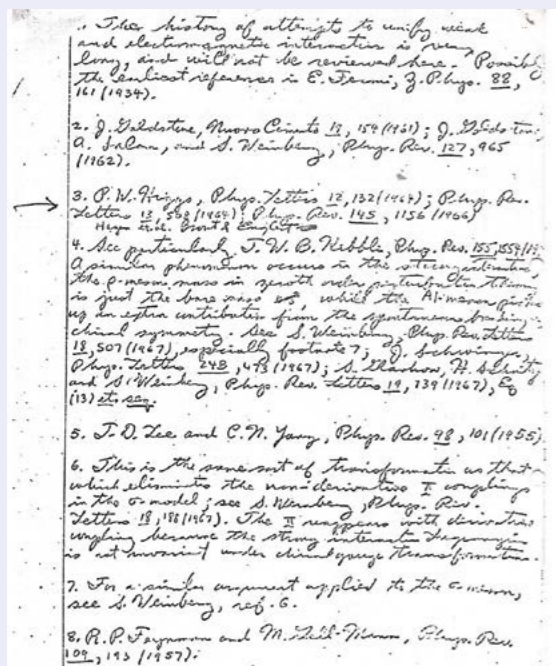 1. The history of attempts to unify weak
and electromagnetic interactions is very
long, and will not be reviewed here. Possibly
the earliest reference is E. Fermi, Z. Phys. 88,
161 (1934).
2. J. Goldstone, Nuovo Cimento 19, 154 (1961); J. Goldstone,
A. Salam, and S. Weinberg, Phys. Rev. 127, 965
(1962).
3. P. W. Higgs, Phys. Letters 12, 132 (1964); Phys. Rev.
Letters 13, 508 (1964); Phys. Rev. 145, 1156 (1966)
Brout & Englert
4. See particularly, T. W. B. Kibble, Phys. Rev. 155, 1554
A similar phenomenon occurs in the strong interactions;
the ρ-meson mass in zeroth order perturbation theory
is just the bare mass, while the A1 meson picks
up an extra contribution from the spontaneous breaking
chiral symmetry. See S. Weinberg, Phys. Rev. Letters
18, 507 (1967), especially footnote 7; J. Schwinger,
Phys. Letters 24B, 473 (1967); S. Glashow, H. Schnitzer
and S. Weinberg, Phys. Rev. Letters 19, 139 (1967), Eq
(13) et seq.
5. T. D. Lee and C. N. Yang, Phys. Rev. 98, 101 (1955).
6. This is the same sort of transformation as that
which eliminates the nonderivative π couplings
in the σ-model; see S. Weinberg, Phys. Rev.
Letters 18, 188 (1967). The π reappears with derivative
coupling because the strong interaction Lagrangian
is not invariant under chiral gauge transformation.
7. For a similar argument applied to the σ-meson,
see S. Weinberg, ref. 6.
8. R. P. Feynman and M. Gell-Mann, Phys. Rev.
109, 193 (1957).